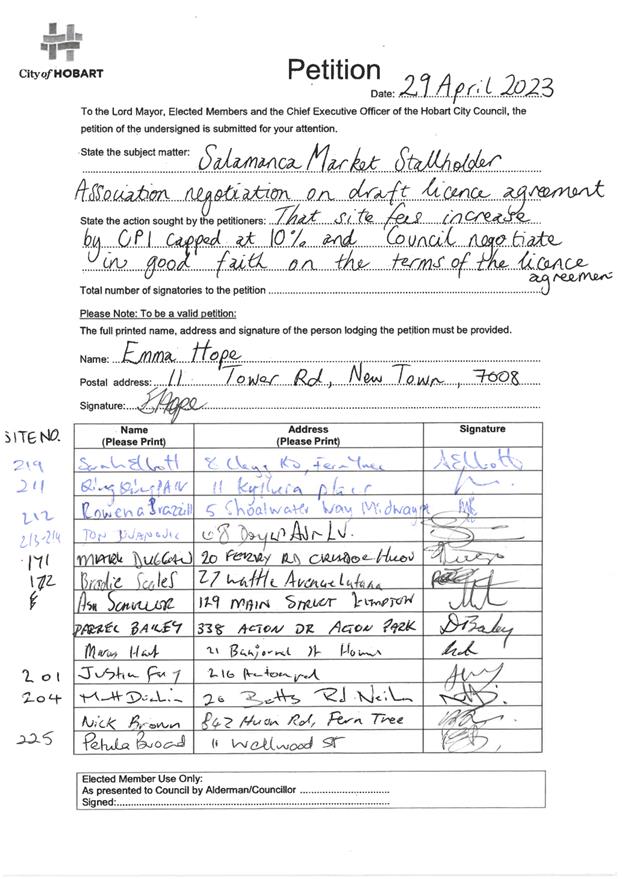 City of HOBART
Petition
Date: 29 April 2023
To the Lord Mayor, Elected Members and the Chief Executive Officer of the Hobart City Council, the
petition of the undersigned is submitted for your attention.
State the subject matter: Salamanca Market Stallholder
Association negotiation on draft licence agreement
State the action sought by the petitioners: That site fees increase
by CPI capped at 10% and Council negotiate
in good faith on the terms of the licence
agreemen
Total number of signatories to the petition
Please Note: To be a valid petition:
The full printed name, address and signature of the person lodging the petition must be provided.
Name: Emma Hope
Postal address: 11 Tower Rd, New Town, 7008
Signature: EHope
SITE NO. Name Address Signature
(Please Print) (Please Print)
219 Sarah Elliott 8 Clegg Rd, Fern Tree AElliott
211 11 place
212 Rowena 5 Shoalwater Way Midway
213-214
171 MARK DUGGAN 20 FERRY RD
172 Brodie Scales 27 Wattle Avenue Lutana
129 MAIN STREET
DARREL BAILEY 338 ACTON DR ACTON PARK DBailey
21 St
201 Justin 216 Acton rd
204 Matt 26 Betts Rd
Nick Brown 842 Huon Rd, Fern Tree
225 Petula Broad 11 Wellwood St
Elected Member Use Only:
As presented to Council by Alderman/Councillor
Signed: